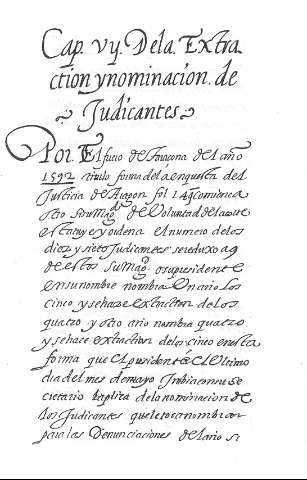 Cap. vij. Dela. Extra
ction y nominacion. de
Judicantes
POR. El fuero de Taraçona del año
1592 titulo forma dela enquesta del
Justicia de Aragon fol 14 comiença
otro si su Mag.d de Voluntad dela corte
estatuye y ordena el numero de los
diez y siete Judicantes se reduxo a 9
de estos su Mag.d o su presidente
en su nombre nombra un año los
cinco y se haze extraction de los
quatro y otro año nombra quatro
y se haze extraction de los cinco en esta
forma que el presidente el Ultimo
dia del mes de mayo Imbia con su se
cretario la plica dela nominacion de
los Judicantes que le toca nombrar
para las Denunciaciones del año si